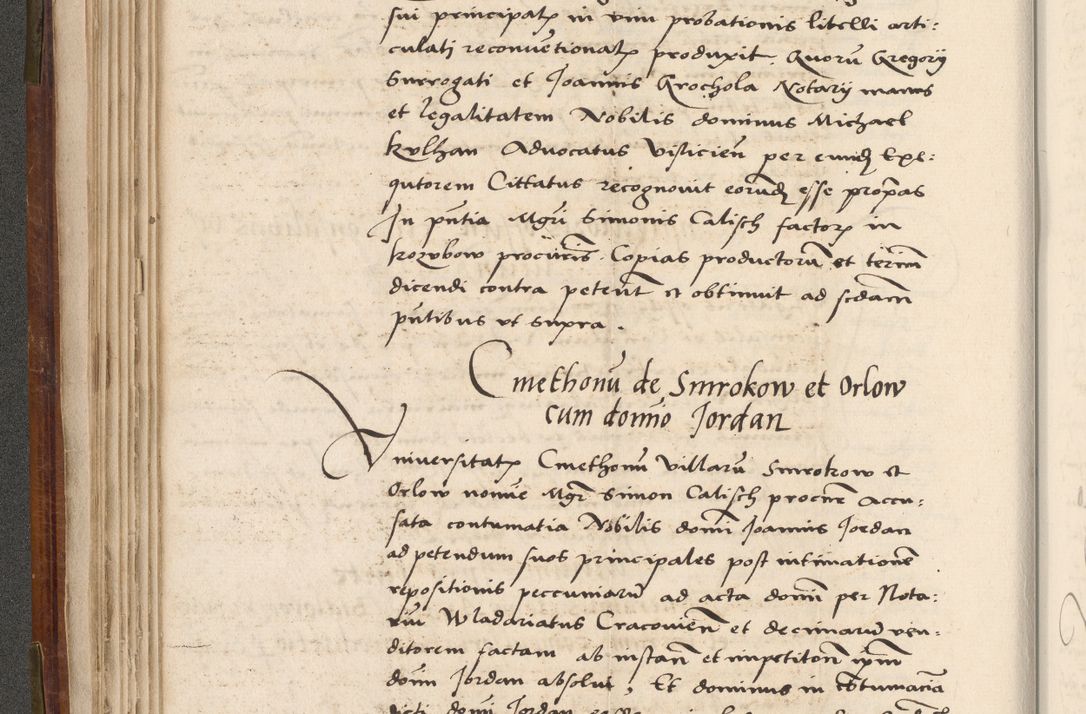 sui principalꝝ in vim probationis libelli arti:
culati reconue̅tionalꝝ produxit. Quoru̅ Gregorij
Surrogati et Joannis Grochola Notarij manus
et legalitatem Nobilis dominus Michael
Kylhan Aduocatus Vislicien̅ per eund̅ Exe:
qutorem Cittatus recognouit eorund̅ esse proprias
In pn̅tia Mgr̅i Simonis Calisch factorꝝ in
Kozubow procur̅is. Copias productoru̅ et termi̅
dicendi contra peten̅t et obtinuit ad sedam̅
pn̅tibus vt supra.
Cmethonu̅ de Smrokow et Orlow
cum domi̅o Jordan
Vniversitatꝝ Cmethonu̅ villaru̅ Smrokow et
Orlow nomi̅e Mgr̅ Simon Calisch procur̅e Accu:
sata contumatia Nobilis domi̅ Joannis Jordan
ad petendum suos principales post intimatione̅
repositionis peccuniaru̅ ad acta domi̅ per Nota:
riu̅ Wladariatus Cracouien̅ et decimaru̅ ven:
ditorem factam ab instan̅ et impetiton̅ ipsi̅
domi̅ Jordan absolui, Et dominus in co̅tumacia̅
dicti domi̅ Jordan